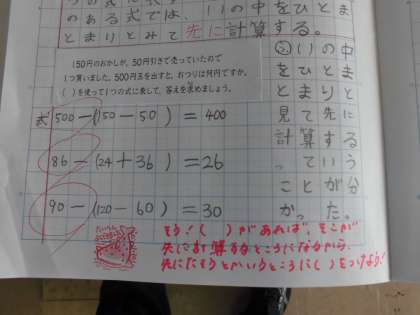 つの式に表
のある式では、( )の中をひとま
とまりとみて先に計算する。
150円のおかしが、50円引きで売っていたので
1つ買いました。500円玉を出すと、おつりは何円ですか。
( )を使って1つの式に表して、答えを求めましょう。
式 500-(150-50)=400
86-(24+36)=26
90-(120-60)=30
( )の中
をひとま
とまりと
見て先に
計算する
っていう
ことが分
かった。
そう!( )があれば、そこが
先に計算するところになるから、
先にたそうとかいうところに( )をつけよう!